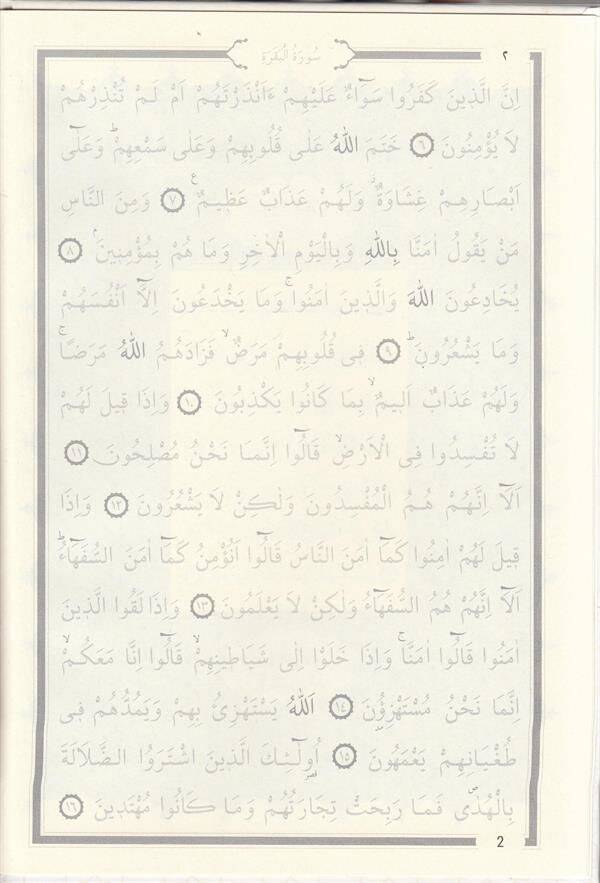 ٢
سُورَةُ الْبَقَرَةِ
اِنَّ الَّذ۪ينَ كَفَرُوا سَوَٓاءٌ عَلَيْهِمْ ءَاَنْذَرْتَهُمْ اَمْ لَمْ تُنْذِرْهُمْ
لَا يُؤْمِنُونَ ﴿٦﴾ خَتَمَ اللّٰهُ عَلٰى قُلُوبِهِمْ وَعَلٰى سَمْعِهِمْۜ وَعَلٰٓى
اَبْصَارِهِمْ غِشَاوَةٌۘ وَلَهُمْ عَذَابٌ عَظ۪يمٌ ﴿٧﴾ وَمِنَ النَّاسِ
مَنْ يَقُولُ اٰمَنَّا بِاللّٰهِ وَبِالْيَوْمِ الْاٰخِرِ وَمَا هُمْ بِمُؤْمِن۪ينَۢ ﴿٨﴾
يُخَادِعُونَ اللّٰهَ وَالَّذ۪ينَ اٰمَنُواۚ وَمَا يَخْدَعُونَ اِلَّٓا اَنْفُسَهُمْ
وَمَا يَشْعُرُونَۜ ﴿٩﴾ ف۪ي قُلُوبِهِمْ مَرَضٌۙ فَزَادَهُمُ اللّٰهُ مَرَضًاۚ
وَلَهُمْ عَذَابٌ اَل۪يمٌۙ بِمَا كَانُوا يَكْذِبُونَ ﴿١٠﴾ وَاِذَا ق۪يلَ لَهُمْ
لَا تُفْسِدُوا فِي الْاَرْضِۙ قَالُٓوا اِنَّمَا نَحْنُ مُصْلِحُونَ ﴿١١﴾
اَلَٓا اِنَّهُمْ هُمُ الْمُفْسِدُونَ وَلٰكِنْ لَا يَشْعُرُونَ ﴿١٢﴾ وَاِذَا
ق۪يلَ لَهُمْ اٰمِنُوا كَمَٓا اٰمَنَ النَّاسُ قَالُٓوا اَنُؤْمِنُ كَمَٓا اٰمَنَ السُّفَهَٓاءُۜ
اَلَٓا اِنَّهُمْ هُمُ السُّفَهَٓاءُ وَلٰكِنْ لَا يَعْلَمُونَ ﴿١٣﴾ وَاِذَا لَقُوا الَّذ۪ينَ
اٰمَنُوا قَالُٓوا اٰمَنَّاۚ وَاِذَا خَلَوْا اِلٰى شَيَاط۪ينِهِمْۙ قَالُٓوا اِنَّا مَعَكُمْۙ
اِنَّمَا نَحْنُ مُسْتَهْزِؤُ۫نَ ﴿١٤﴾ اَللّٰهُ يَسْتَهْزِئُ بِهِمْ وَيَمُدُّهُمْ ف۪ي
طُغْيَانِهِمْ يَعْمَهُونَ ﴿١٥﴾ اُو۬لٰٓئِكَ الَّذ۪ينَ اشْتَرَوُا الضَّلَالَةَ
بِالْهُدٰىۖ فَمَا رَبِحَتْ تِجَارَتُهُمْ وَمَا كَانُوا مُهْتَد۪ينَ ﴿١٦﴾
2